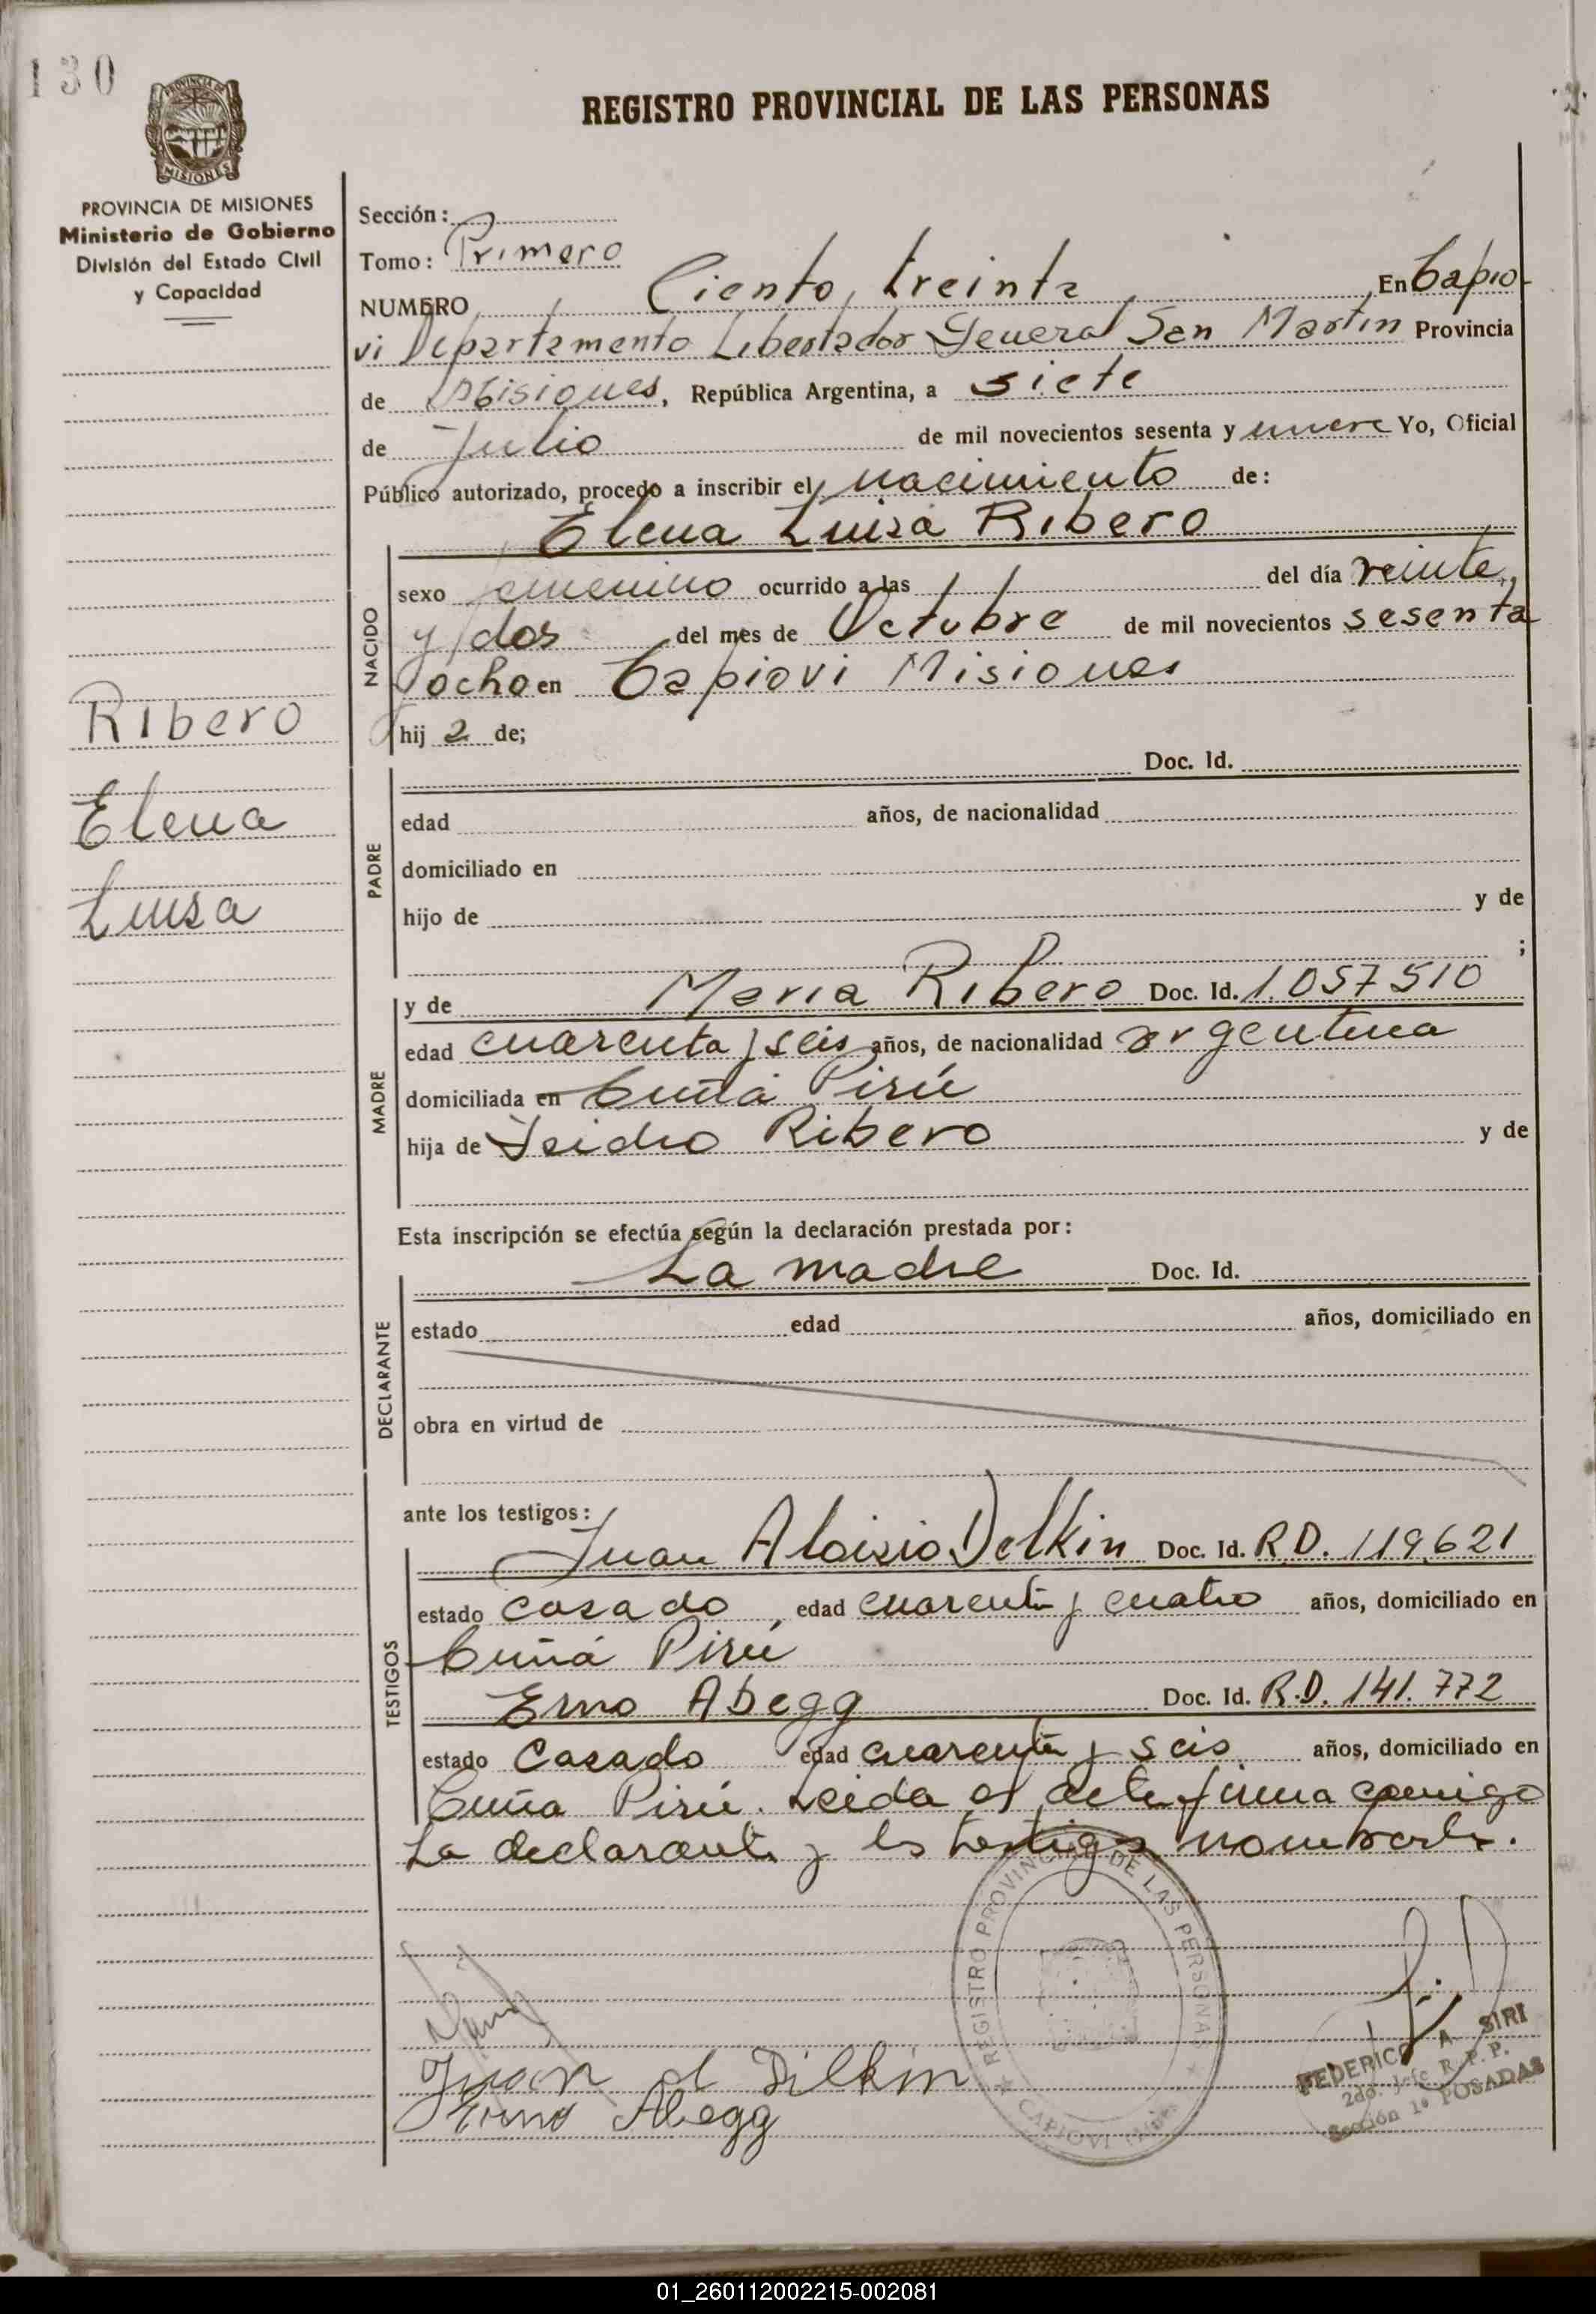 130
REGISTRO PROVINCIAL DE LAS PERSONAS
PROVINCIA DE MISIONES
Ministerio de Gobierno
División del Estado Civil
y Capacidad
Sección:
Tomo: Primero
NUMERO Ciento treinta En Capio-
vi Departamento Libertador General San Martin Provincia
de Misiones, República Argentina, a siete
de Julio de mil novecientos sesenta y nueve Yo, Oficial
Público autorizado, procedo a inscribir el nacimiento de:
Elena Luisa Ribero
NACIDO
sexo femenino ocurrido a las del día veinte
y dos del mes de Octubre de mil novecientos sesenta
y ocho en Capiovi Misiones
hij a de;
Ribero
Elena
Luisa
PADRE
Doc. Id.
edad años, de nacionalidad
domiciliado en
hijo de y de
;
MADRE
y de Maria Ribero Doc. Id. 1.057510
edad cuarenta y seis años, de nacionalidad argentina
domiciliada en Cuñá Pirú
hija de Isidro Ribero y de
Esta inscripción se efectúa según la declaración prestada por:
DECLARANTE
La madre Doc. Id.
estado edad años, domiciliado en
obra en virtud de
ante los testigos:
TESTIGOS
Juan Aloisio Delkin Doc. Id. R.D. 119.621
estado casado, edad cuarenta y cuatro años, domiciliado en
Cuñá Pirú
Erno Abegg Doc. Id. R.D. 141.772
estado Casado edad cuarenta y seis años, domiciliado en
Cuña Pirú. Leida el acta firma conmigo
La declarante y los testigos nombrados.
REGISTRO PROVINCIAL DE LAS PERSONAS
CAPIOVI
Juan A Dilkin
Erno Abegg
FEDERICO A. SIRI
2do. Jefe R. P. P.
Sección 1ª POSADAS
01_260112002215-002081